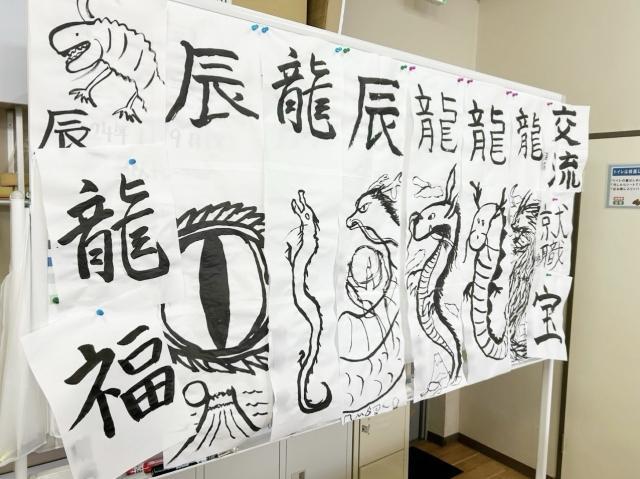 辰
辰
龍
辰
龍
龍
龍
交流
龍
福
就職
宝